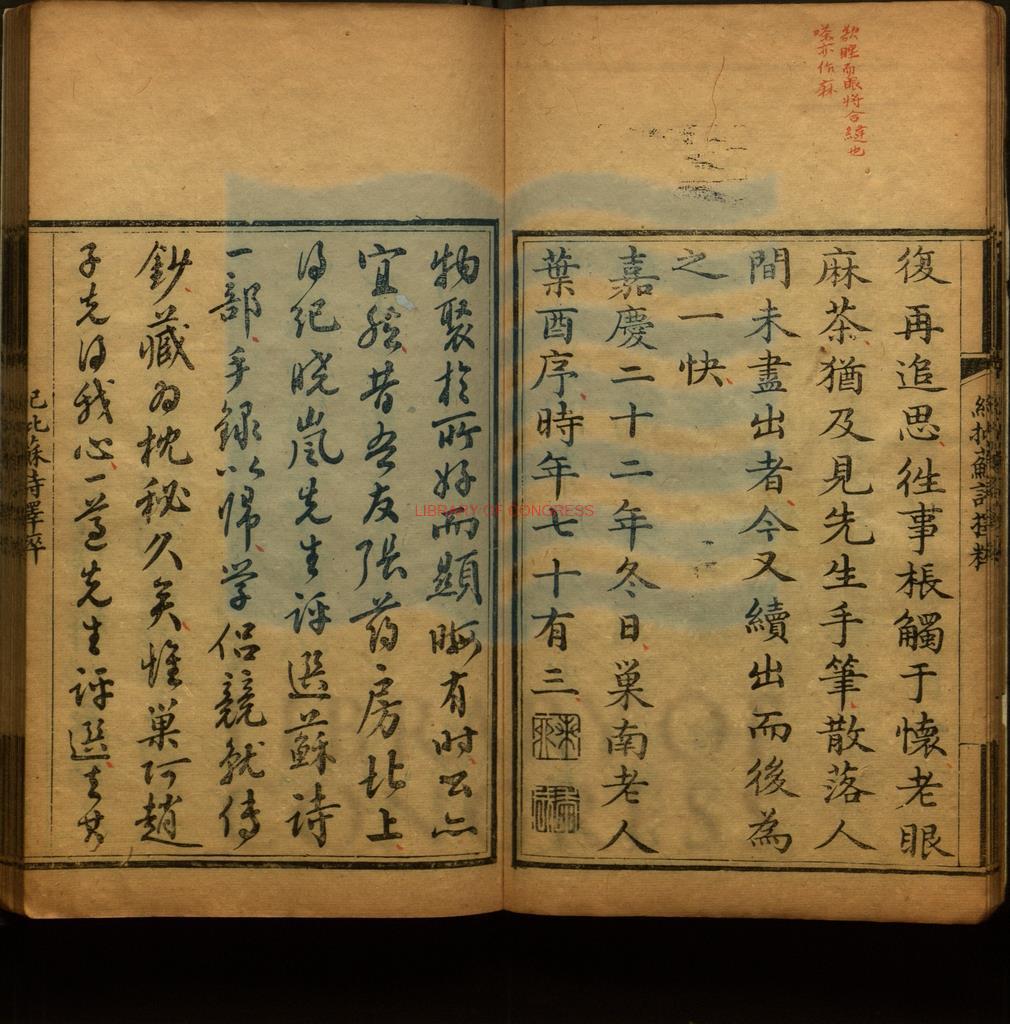 欲瞪而眼將合縫也
亦作麻
復再追思徃事棖觸于懷老眼
麻茶猶及見先生手筆散落人
間未盡出者今又續出而後為
之一快
嘉慶二十二年冬日巢南老人
葉酉序時年七十有三
物聚於所好而顯晦有時公亦
宜然昔吾友張葯房北上
得紀曉嵐先生評選蘇詩
一部手錄以歸學侶競就傳
鈔藏為枕秘久矣惟巢阿趙
子先得我心一遵先生評選去其
LIBRARY OF CONGRESS